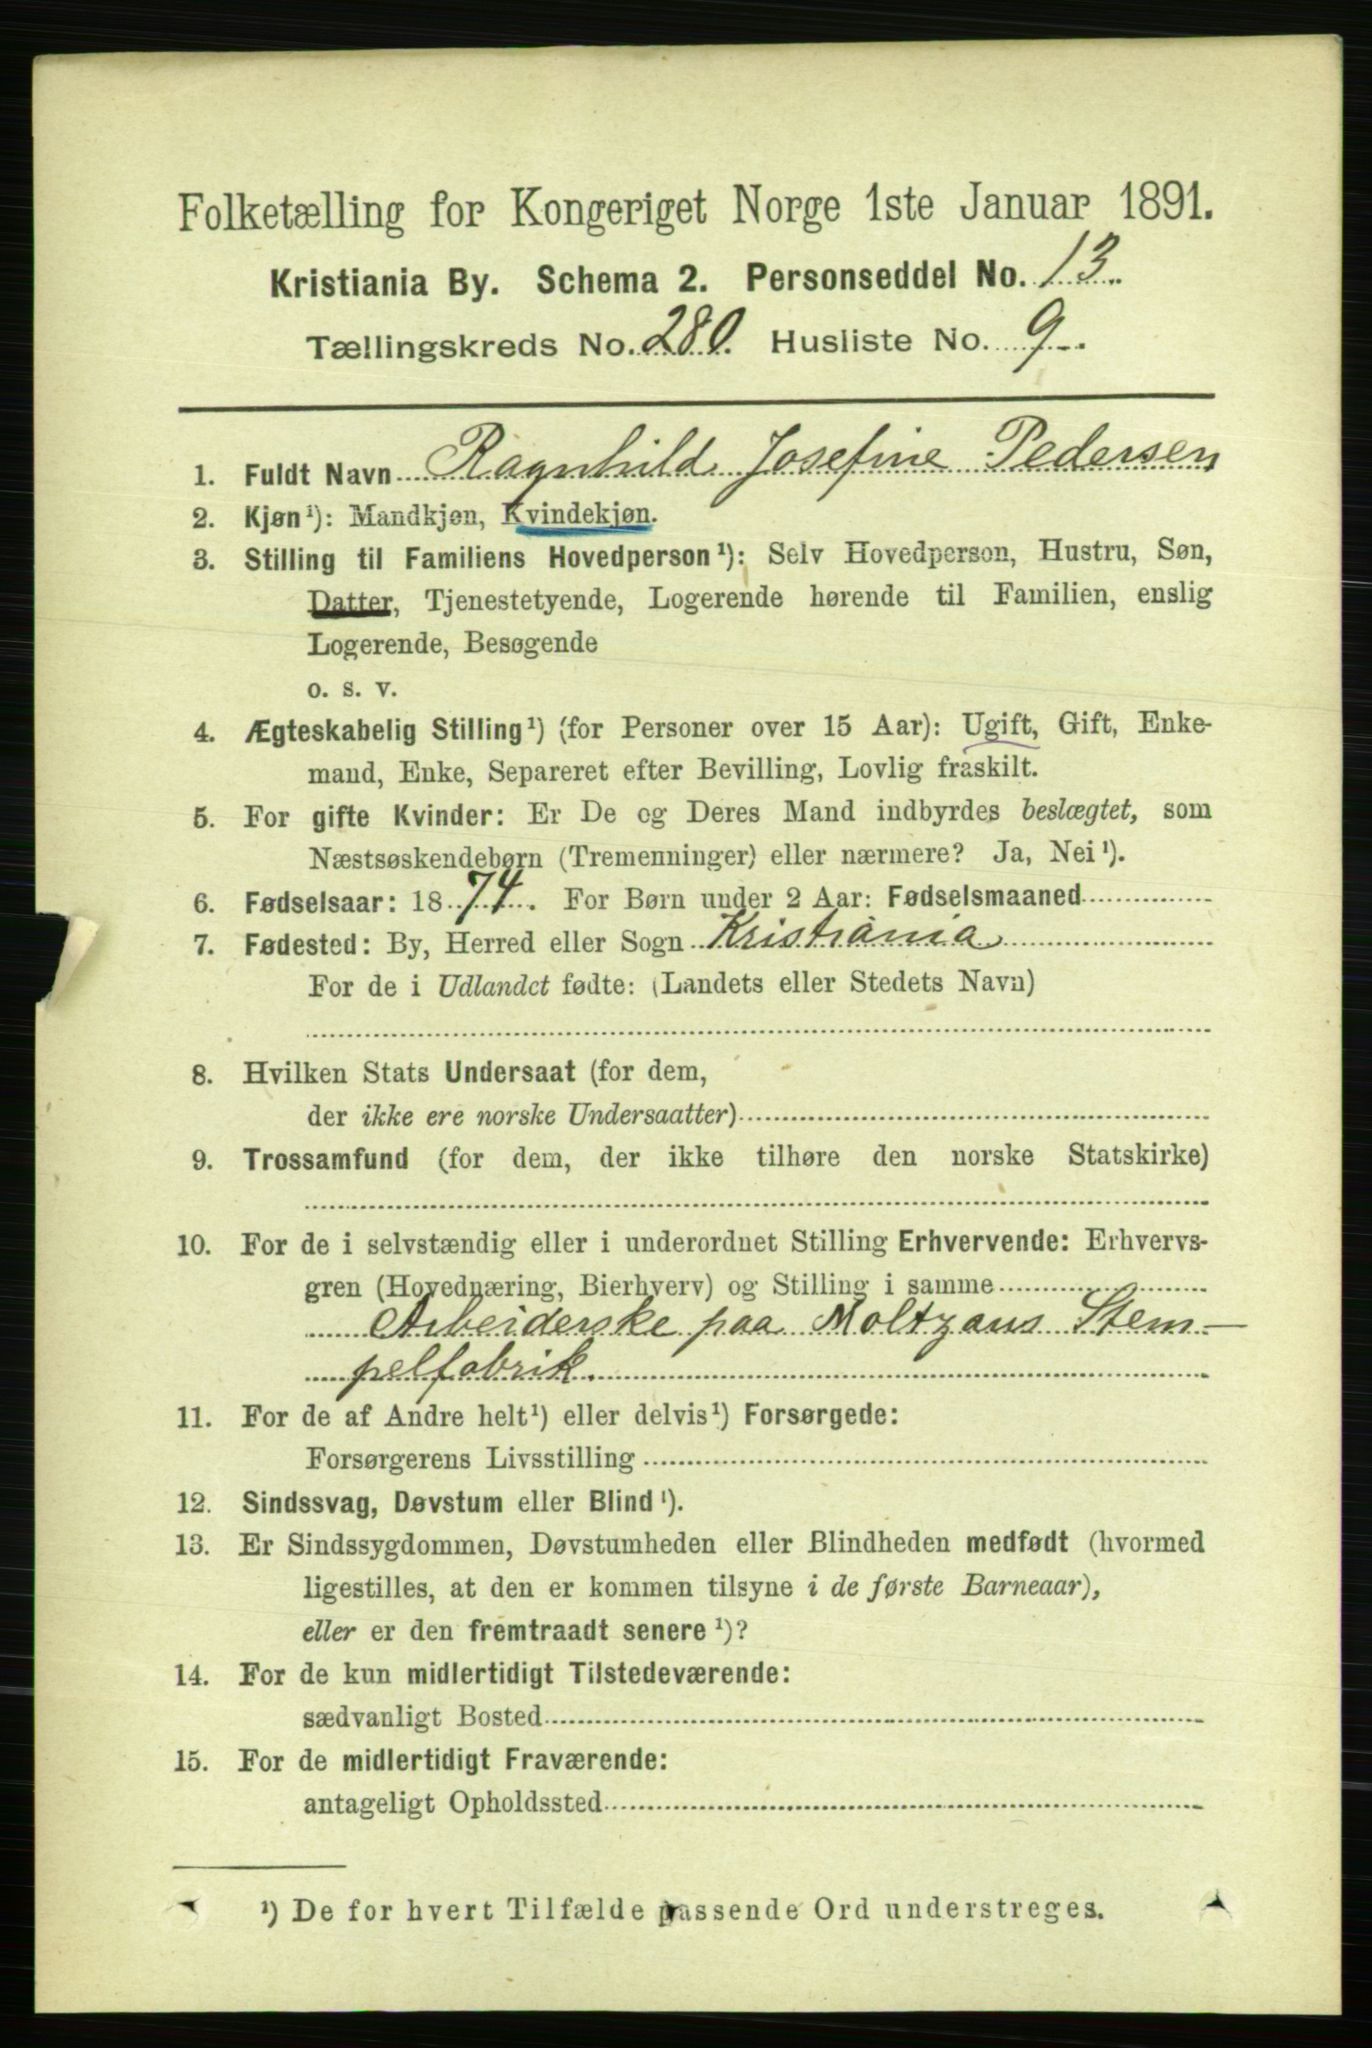 Folketælling for Kongeriget Norge 1ste Januar 1891.
Kristiania By. Schema 2. Personseddel No. 13.
Tællingskreds No. 280. Husliste No. 9.
1. Fuldt Navn Ragnhild Josefine Pedersen
2. Kjøn¹): Mandkjøn, Kvindekjøn.
3. Stilling til Familiens Hovedperson¹): Selv Hovedperson, Hustru, Søn,
Datter, Tjenestetyende, Logerende hørende til Familien, enslig
Logerende, Besøgende
o. s. v.
4. Ægteskabelig Stilling¹) (for Personer over 15 Aar): Ugift, Gift, Enke-
mand, Enke, Separeret efter Bevilling, Lovlig fraskilt.
5. For gifte Kvinder: Er De og Deres Mand indbyrdes beslægtet, som
Næstsøskendebørn (Tremenninger) eller nærmere? Ja, Nei¹).
6. Fødselsaar: 1874. For Børn under 2 Aar: Fødselsmaaned
7. Fødested: By, Herred eller Sogn Kristiania
For de i Udlandet fødte: (Landets eller Stedets Navn)
8. Hvilken Stats Undersaat (for dem,
der ikke ere norske Undersaatter)
9. Trossamfund (for dem, der ikke tilhøre den norske Statskirke)
10. For de i selvstændig eller i underordnet Stilling Erhvervende: Erhvervs-
gren (Hovednæring, Bierhverv) og Stilling i samme
Arbeiderske paa Moltzaus Stem-
pelfabrik.
11. For de af Andre helt¹) eller delvis¹) Forsørgede:
Forsørgerens Livsstilling
12. Sindssvag, Døvstum eller Blind¹).
13. Er Sindssygdommen, Døvstumheden eller Blindheden medfødt (hvormed
ligestilles, at den er kommen tilsyne i de første Barneaar),
eller er den fremtraadt senere¹)?
14. For de kun midlertidigt Tilstedeværende:
sædvanligt Bosted
15. For de midlertidigt Fraværende:
antageligt Opholdssted
¹) De for hvert Tilfælde passende Ord understreges.